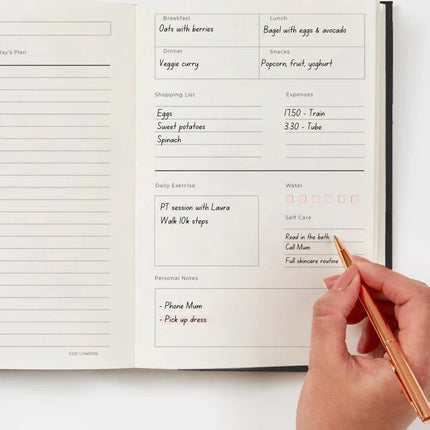 ay's Plan
CGD LONDON
Breakfast
Lunch
Oats with berries
Bagel with eggs & avocado
Dinner
Snacks
Veggie curry
Popcorn, fruit, yoghurt
Shopping List
Expenses
Eggs
17.50 - Train
Sweet potatoes
3.30 - Tube
Spinach
Daily Exercise
Water
PT session with Laura
Walk 10k steps
Self Care
Read in the bath
Call Mum
Full skincare routine
Personal Notes
- Phone Mum
- Pick up dress